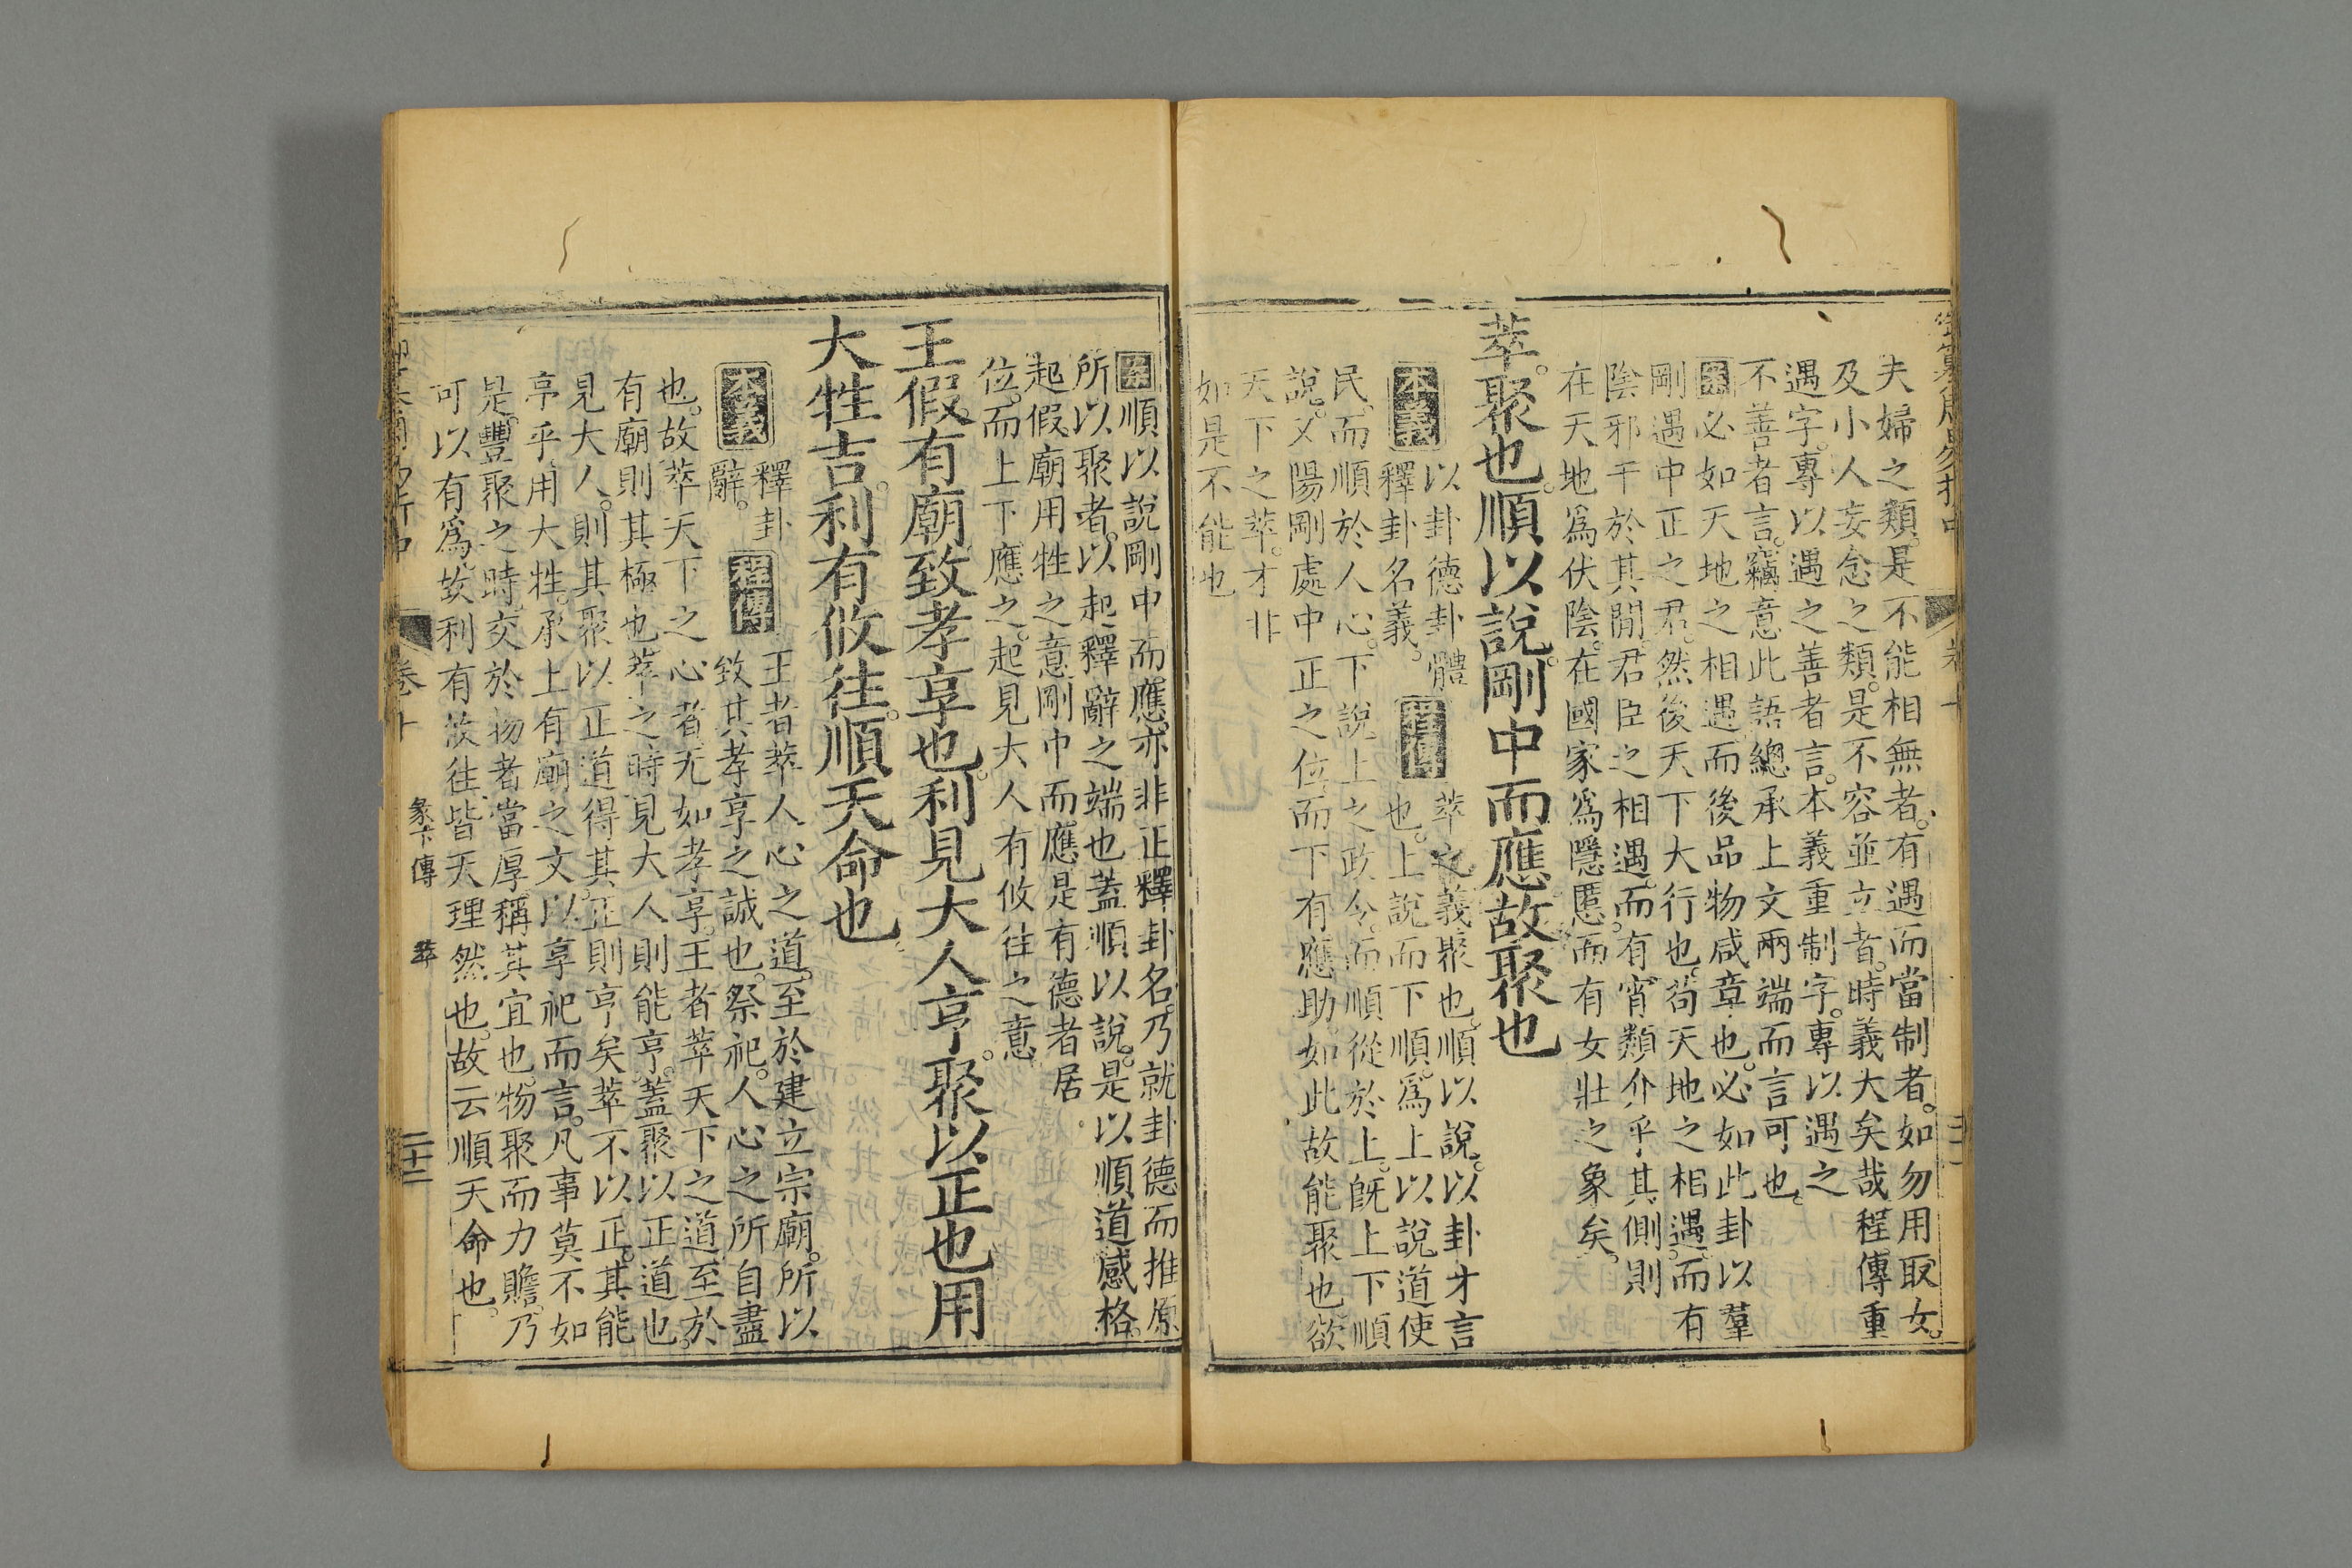 夫婦之類。是不能相無者。有遇而當制者。如勿用取女。
及小人妄念之類。是不容並立者。時義大矣哉。程傳重
遇字。專以遇之善者言。本義重制字。專以遇之
不善者言。竊意此語總承上文兩端而言可也。
案必如天地之相遇而後品物咸章也。必如此卦以羣
剛遇中正之君。然後天下大行也。苟天地之相遇。而有
陰邪干於其閒。君臣之相遇。而有宵類介乎其側。則
在天地爲伏陰。在國家爲隱慝。而有女壯之象矣。
萃。聚也。順以說。剛中而應。故聚也
本義
以卦德卦體
釋卦名義。
程傳
萃之義聚也。順以說。以卦才言
也。上說而下順。爲上以說道使
民。而順於人心。下說上之政令。而順從於上。旣上下順
說。又陽剛處中正之位。而下有應助。如此故能聚也。欲
天下之萃。才非
如是不能也
案順以說剛中而應。亦非正釋卦名。乃就卦德而推原
所以聚者。以起釋辭之端也。蓋順以說。是以順道感格。
起假廟用牲之意。剛中而應。是有德者居
位。而上下應之。起見大人有攸往之意
王假有廟。致孝享也。利見大人亨。聚以正也。用
大牲吉。利有攸往。順天命也。
本義
釋卦
辭。
程傳
王者萃人心之道。至於建立宗廟。所以
致其孝享之誠也。祭祀。人心之所自盡
也。故萃天下之心者。无如孝享。王者萃天下之道。至於
有廟則其極也。萃之時。見大人則能亨。蓋聚以正道也。
見大人。則其聚以正道。得其正則亨矣。萃不以正。其能
亨乎。用大牲。承上有廟之文。以享祀而言。凡事莫不如
是。豐聚之時。交於物者當厚。稱其宜也。物聚而力贍。乃
可以有爲。故利有攸往。皆天理然也。故云順天命也。
卷十
彖下傳
萃
二十二